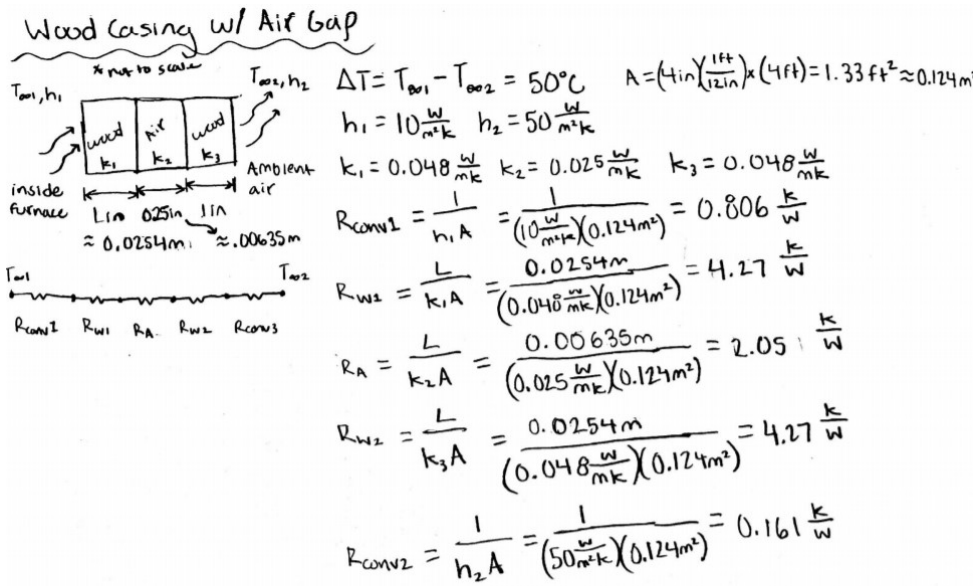 Wood Casing w/ Air Gap
* not to scale
T∞1, h1
T∞2, h2
wood k1
air k2
wood k3
inside furnace
Ambient air
1in 025in 1in
≈ 0.0254m ≈ .00635m
T∞1 T∞2
Rconv1 Rw1 RA Rw2 Rconv3
ΔT = T∞1 - T∞2 = 50°C A = (4in)(1ft/12in) x (4ft) = 1.33 ft² ≈ 0.124m²
h1 = 10 W/m²k h2 = 50 W/m²k
k1 = 0.048 W/mk k2 = 0.025 W/mk k3 = 0.048 W/mk
Rconv1 = 1/h1A = 1/(10 W/m²k)(0.124m²) = 0.806 k/W
Rw1 = L/k1A = 0.0254m/(0.048 W/mk)(0.124m²) = 4.27 k/W
RA = L/k2A = 0.00635m/(0.025 W/mk)(0.124m²) = 2.05 k/W
Rw2 = L/k3A = 0.0254m/(0.048 W/mk)(0.124m²) = 4.27 k/W
Rconv2 = 1/h2A = 1/(50 W/m²k)(0.124m²) = 0.161 k/W